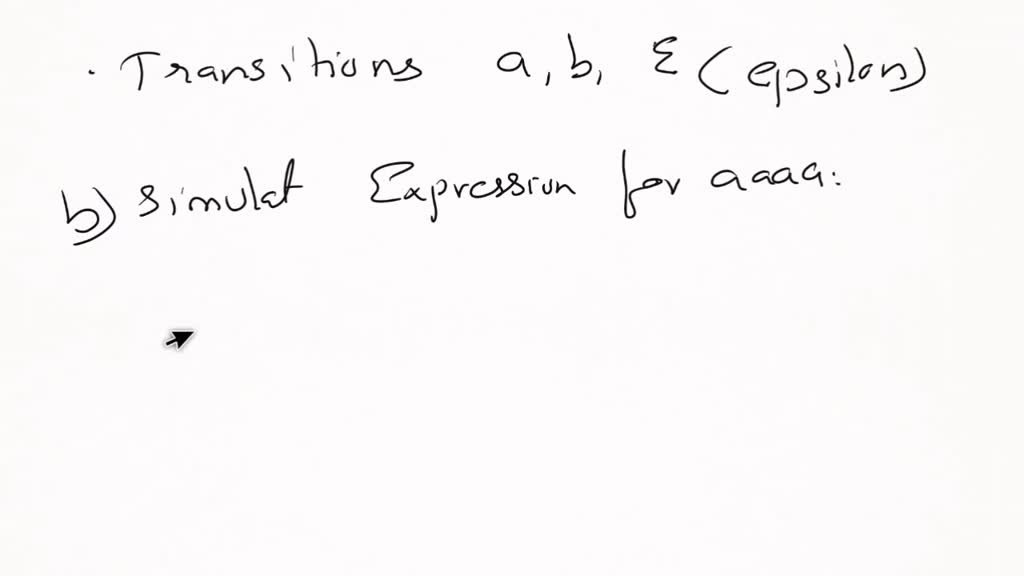 . Transitions a, b, ε (epsilon)
b) simulat Expression for aaaa: